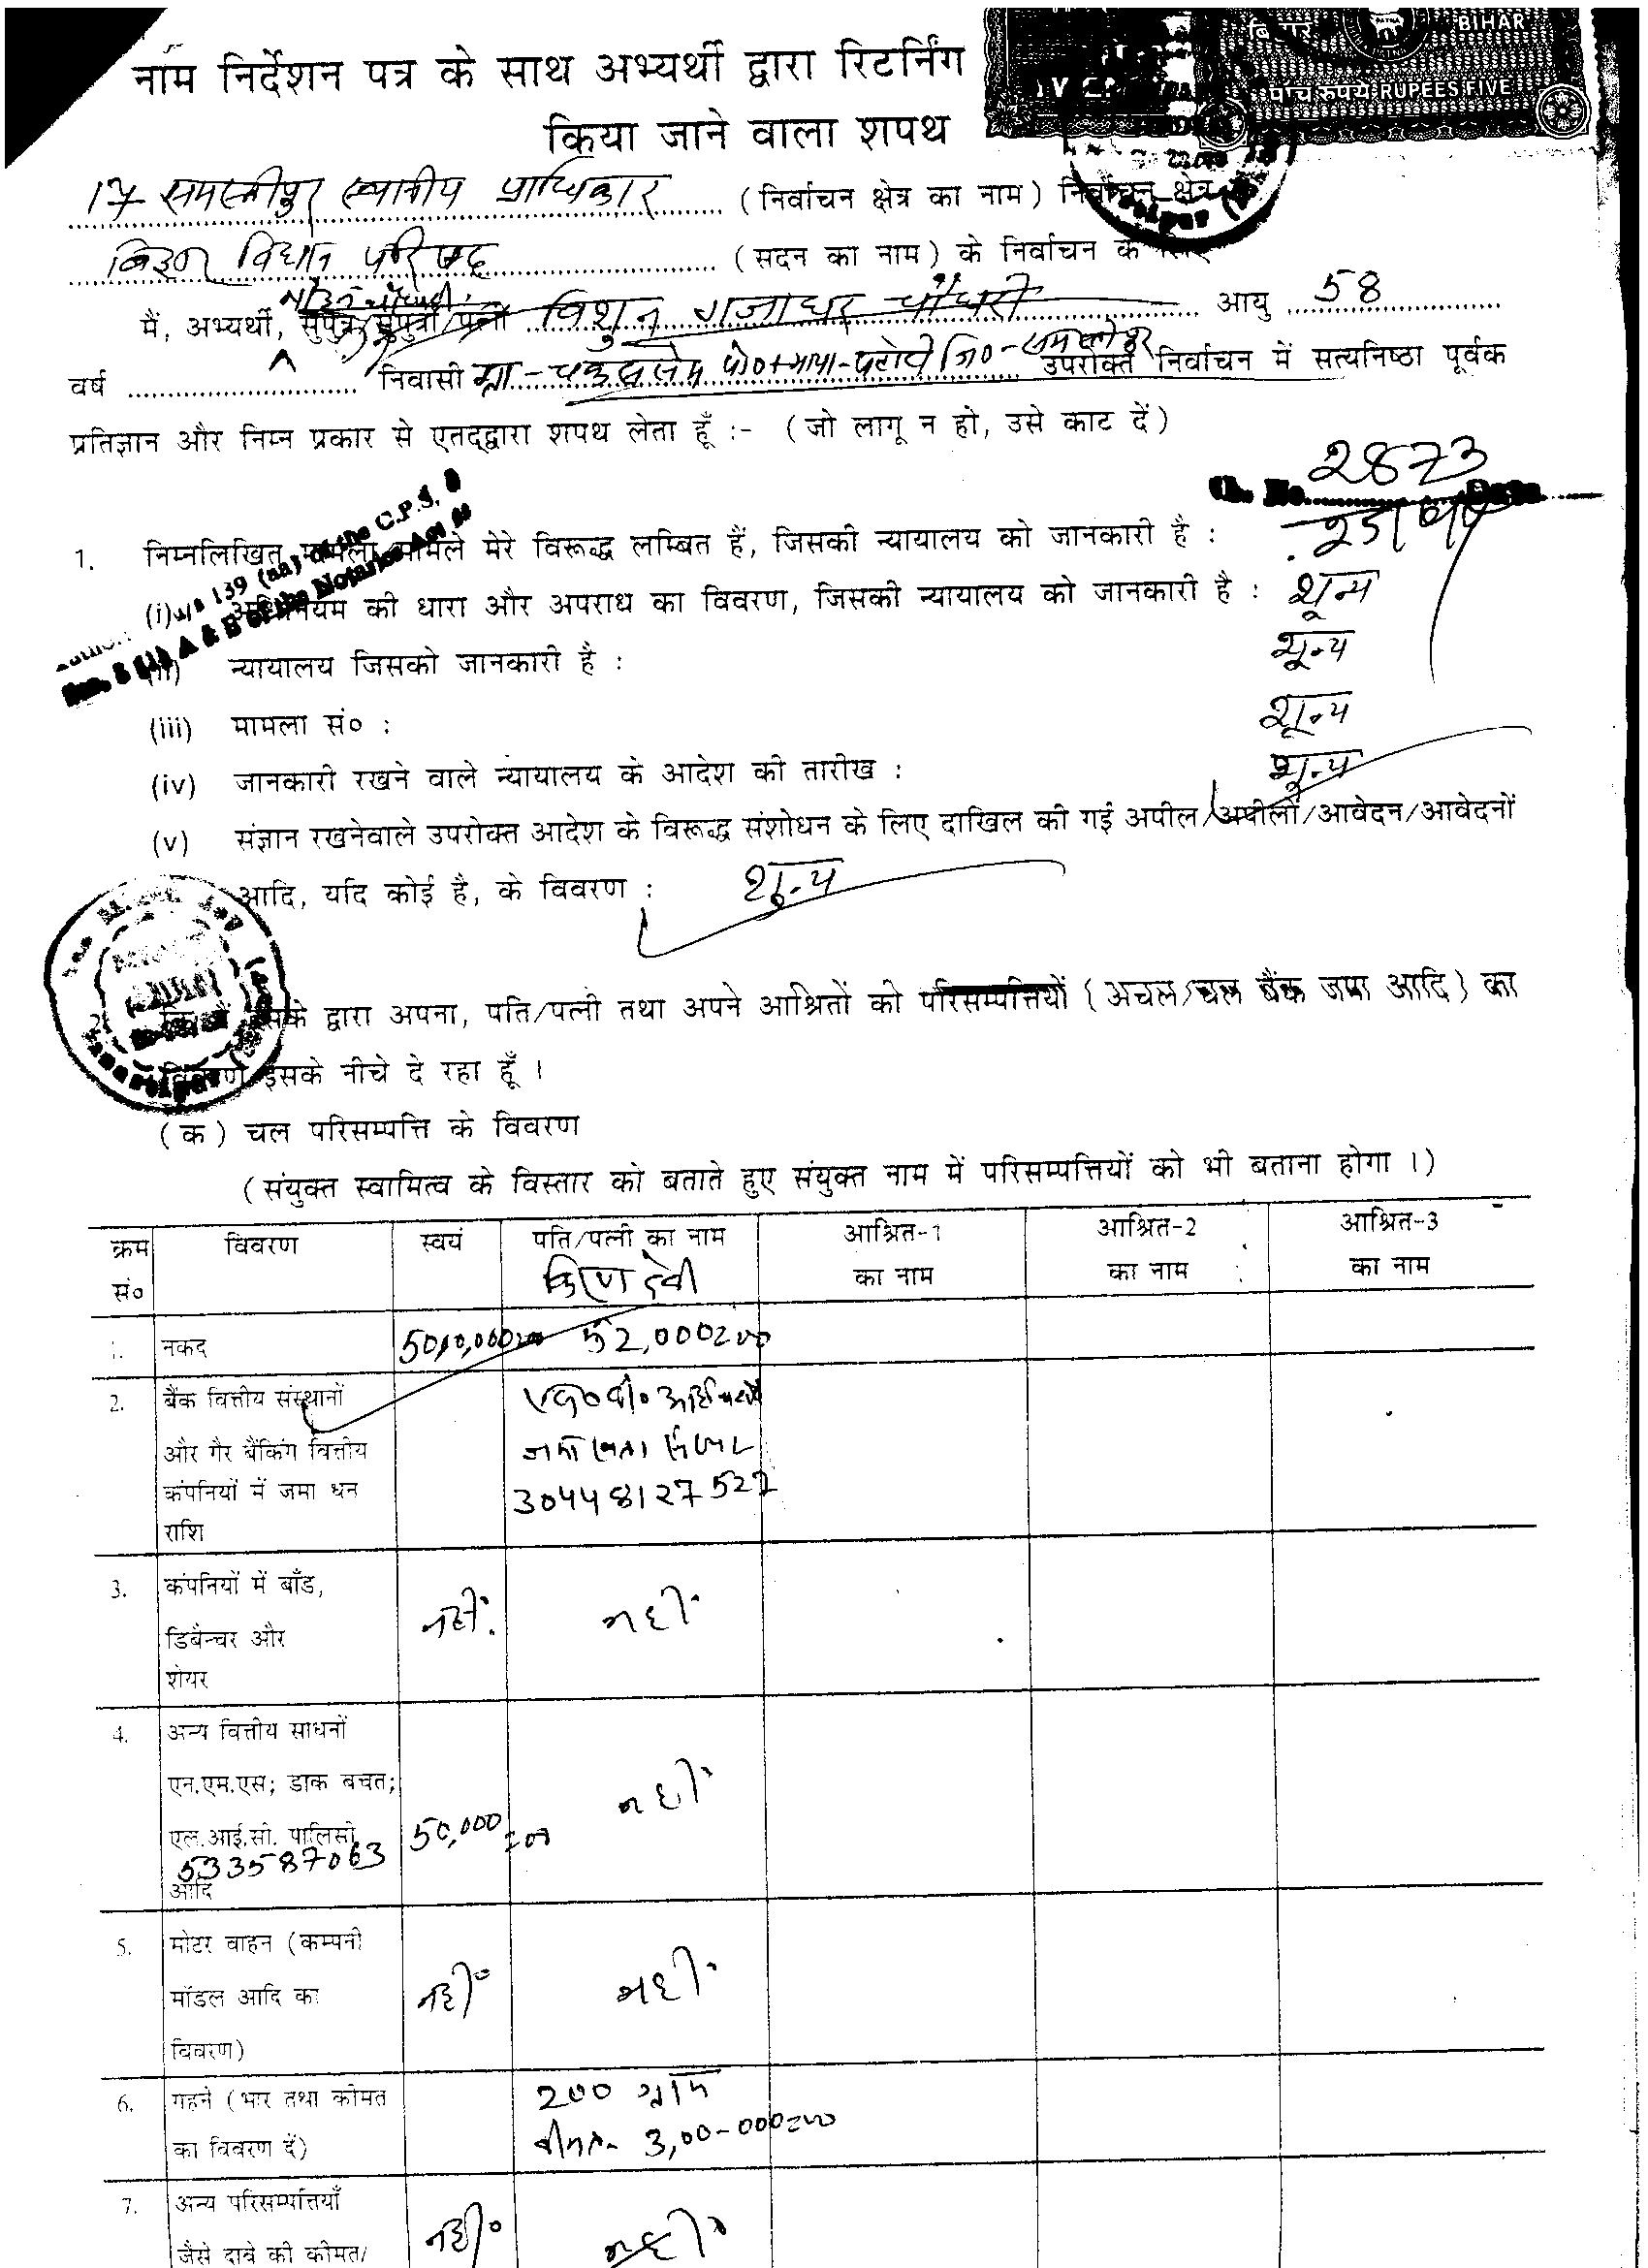 BIHAR
पांच रुपये RUPEES FIVE
नाम निर्देशन पत्र के साथ अभ्यर्थी द्वारा रिटर्निंग
किया जाने वाला शपथ
17 समस्तीपुर स्थानीय प्राधिकार (निर्वाचन क्षेत्र का नाम) निर्वाचन क्षेत्र
बिहार विधान परिषद (सदन का नाम) के निर्वाचन के लिए
मैं, अभ्यर्थी, सुपुत्र/सुपुत्री/पत्नी विशुन गजाधर चौधरी आयु 58
वर्ष निवासी उपरोक्त निर्वाचन में सत्यनिष्ठा पूर्वक
प्रतिज्ञान और निम्न प्रकार से एतद्द्वारा शपथ लेता हूँ :- (जो लागू न हो, उसे काट दें)
2873
1. निम्नलिखित मामला/मामले मेरे विरूद्ध लम्बित हैं, जिसकी न्यायालय को जानकारी है :
u/s 139 (aa) of the C.P.S.
A & B of the Notaries Act
(i) अधिनियम की धारा और अपराध का विवरण, जिसकी न्यायालय को जानकारी है : शून्य
(ii) न्यायालय जिसको जानकारी है : शून्य
(iii) मामला सं० : शून्य
(iv) जानकारी रखने वाले न्यायालय के आदेश की तारीख : शून्य
(v) संज्ञान रखनेवाले उपरोक्त आदेश के विरूद्ध संशोधन के लिए दाखिल की गई अपील/अपीलों/आवेदन/आवेदनों
आदि, यदि कोई है, के विवरण : शून्य
द्वारा अपना, पति/पत्नी तथा अपने आश्रितों की परिसम्पत्तियों (अचल/चल बैंक जमा आदि) का
विवरण इसके नीचे दे रहा हूँ ।
(क) चल परिसम्पत्ति के विवरण
(संयुक्त स्वामित्व के विस्तार को बताते हुए संयुक्त नाम में परिसम्पत्तियों को भी बताना होगा ।)
क्रम सं० विवरण स्वयं पति/पत्नी का नाम आश्रित-1 का नाम आश्रित-2 का नाम आश्रित-3 का नाम
किरण देवी
1. नकद 52,000=00
2. बैंक वित्तीय संस्थानों
और गैर बैंकिंग वित्तीय
कंपनियों में जमा धन 30448127527
राशि
3. कंपनियों में बाँड,
डिबैन्चर और नहीं नहीं
शेयर
4. अन्य वित्तीय साधनों
एन.एम.एस; डाक बचत; नहीं
एल.आई.सी. पालिसी 50,000=00
533587063
आदि
5. मोटर वाहन (कम्पनी
मॉडल आदि का नहीं नहीं
विवरण)
6. गहने (भार तथा कीमत 200 ग्राम
का विवरण दें) 3,00-000=00
7. अन्य परिसम्पत्तियाँ
जैसे दावे की कीमत/ नहीं नहीं